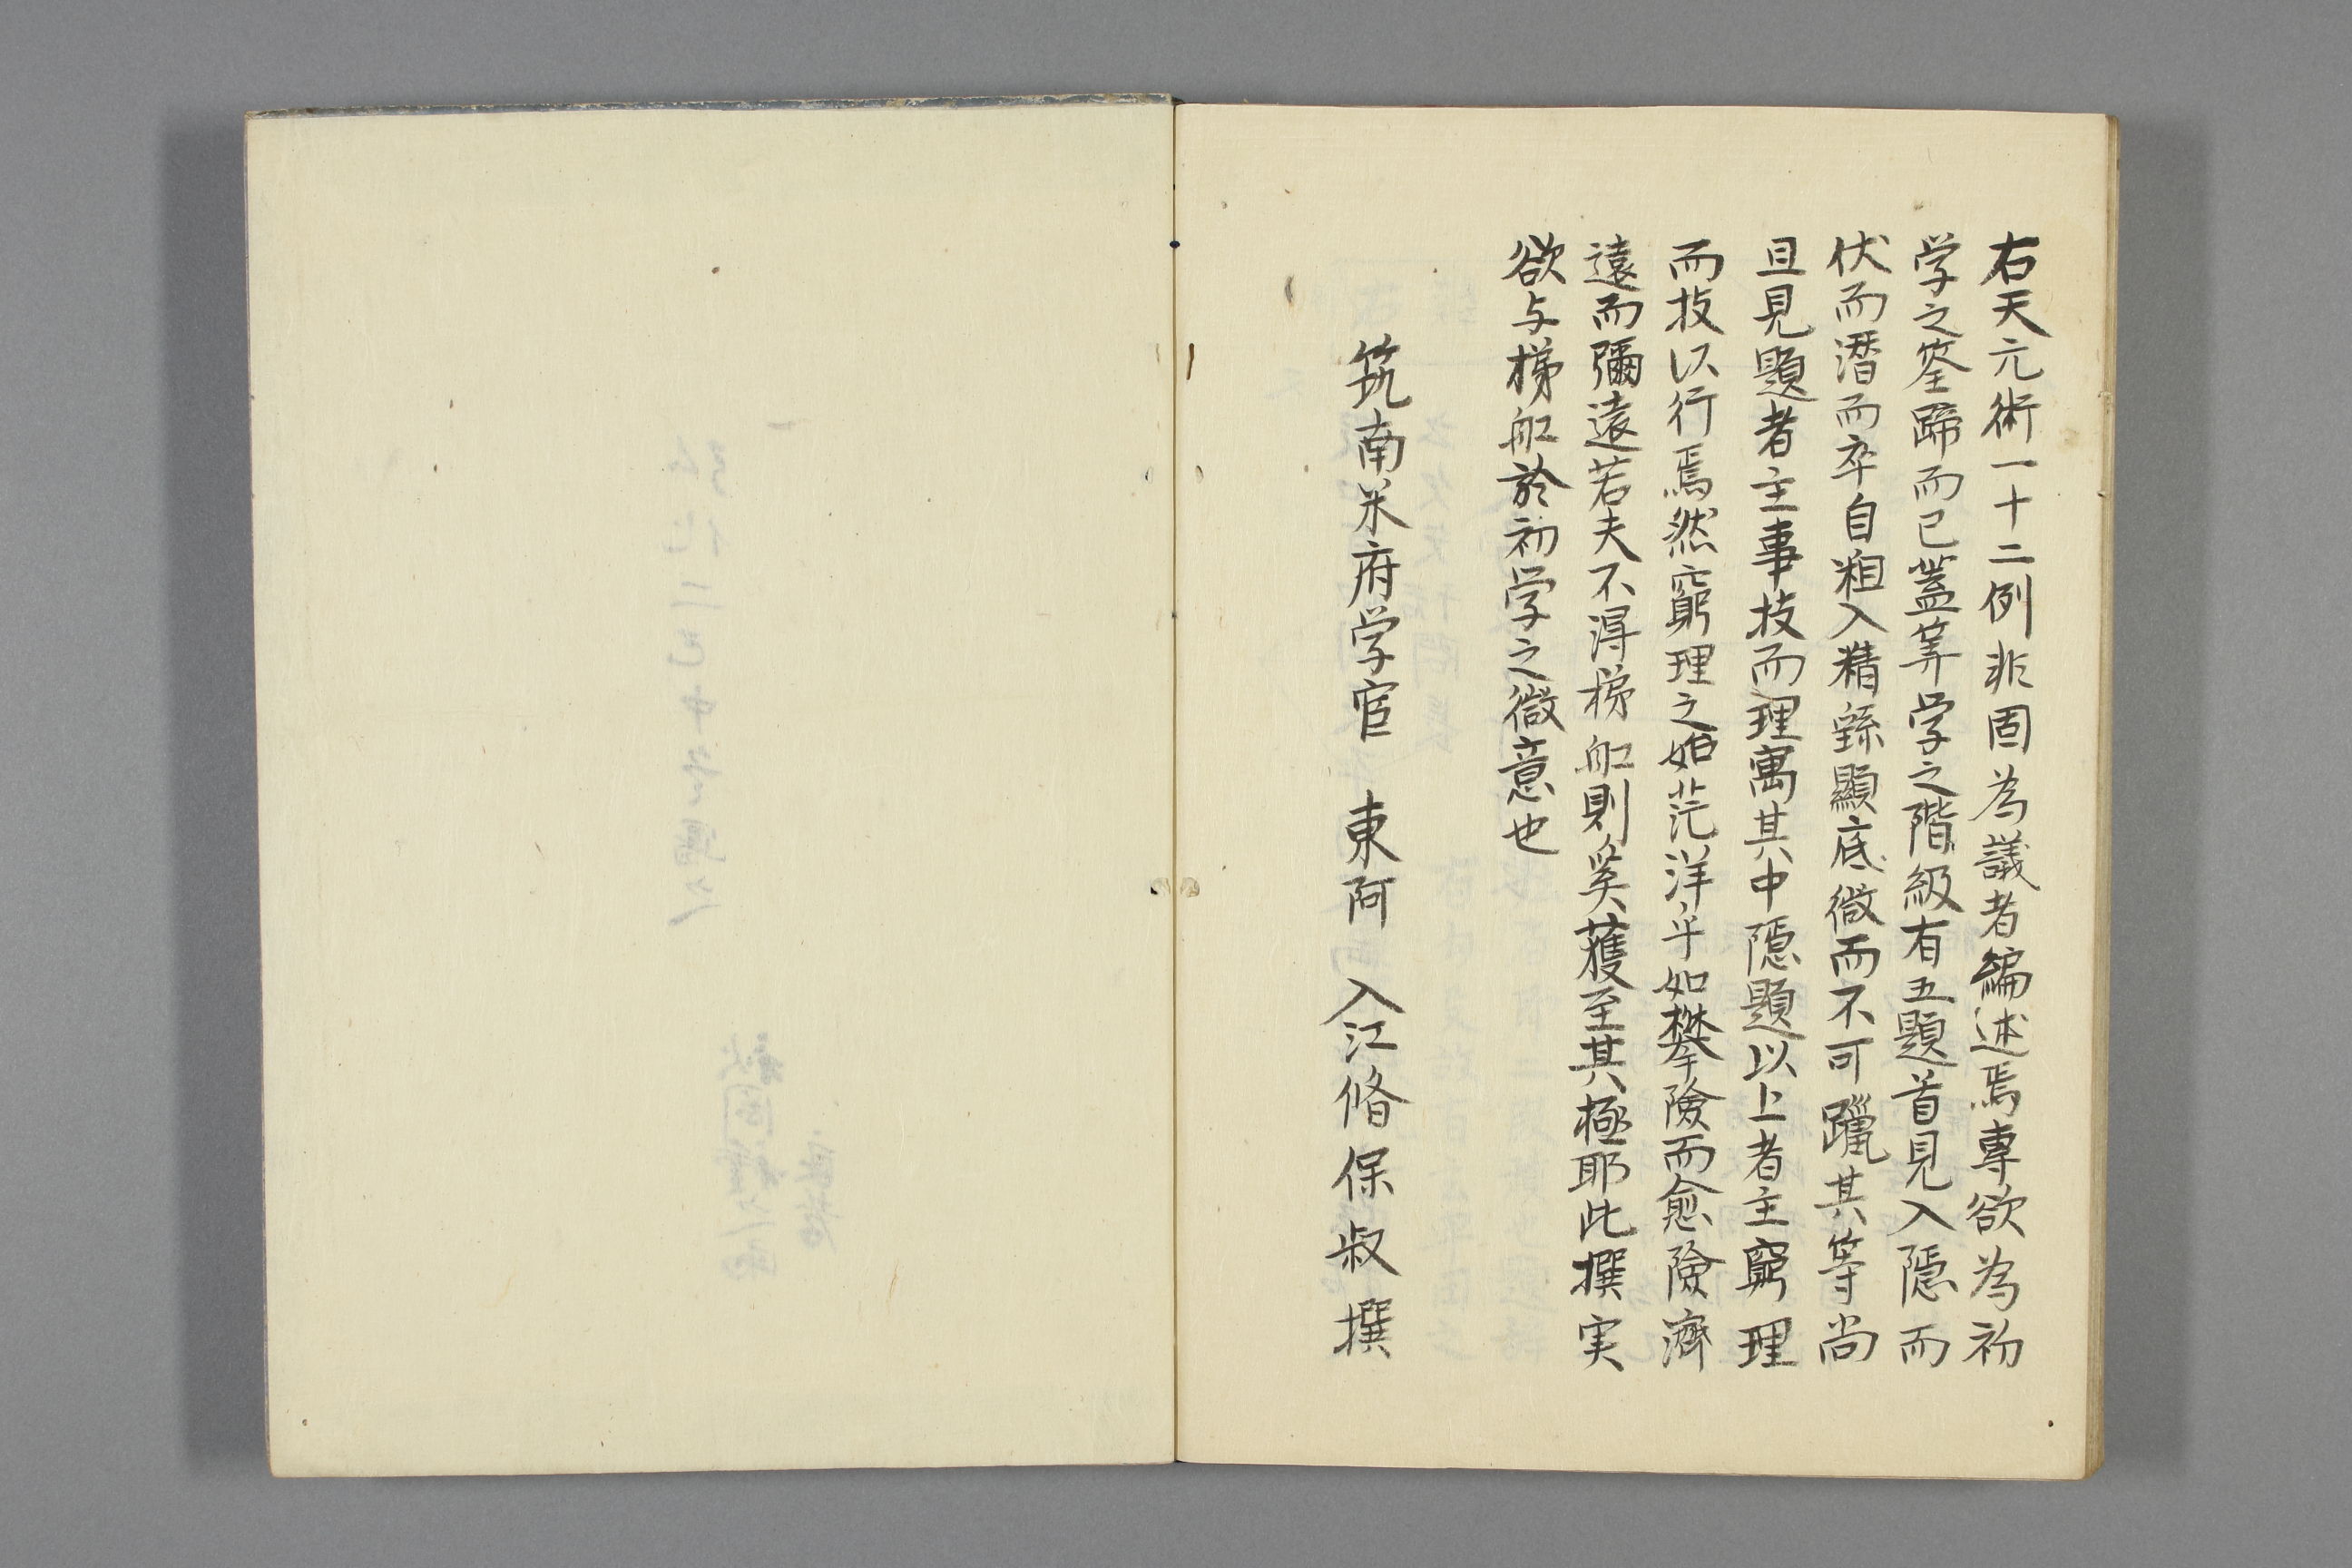 右天元術一十二例非固為議者編述焉専欲為初
学之筌蹄而已蓋筭学之階級有五題首見入隠而
伏而潜而卒自粗入精繇顯底微而不可躐其等尚
且見題者主事技而理寓其中隠題以上者主窮理
而技以行焉然窮理之始茫洋乎如攀險而愈險濟
遠而彌遠若夫不淂梯舩則奚獲至其極耶此撰実
欲与梯舩於初学之微意也
筑南米府学官 東阿 入江脩保叔撰